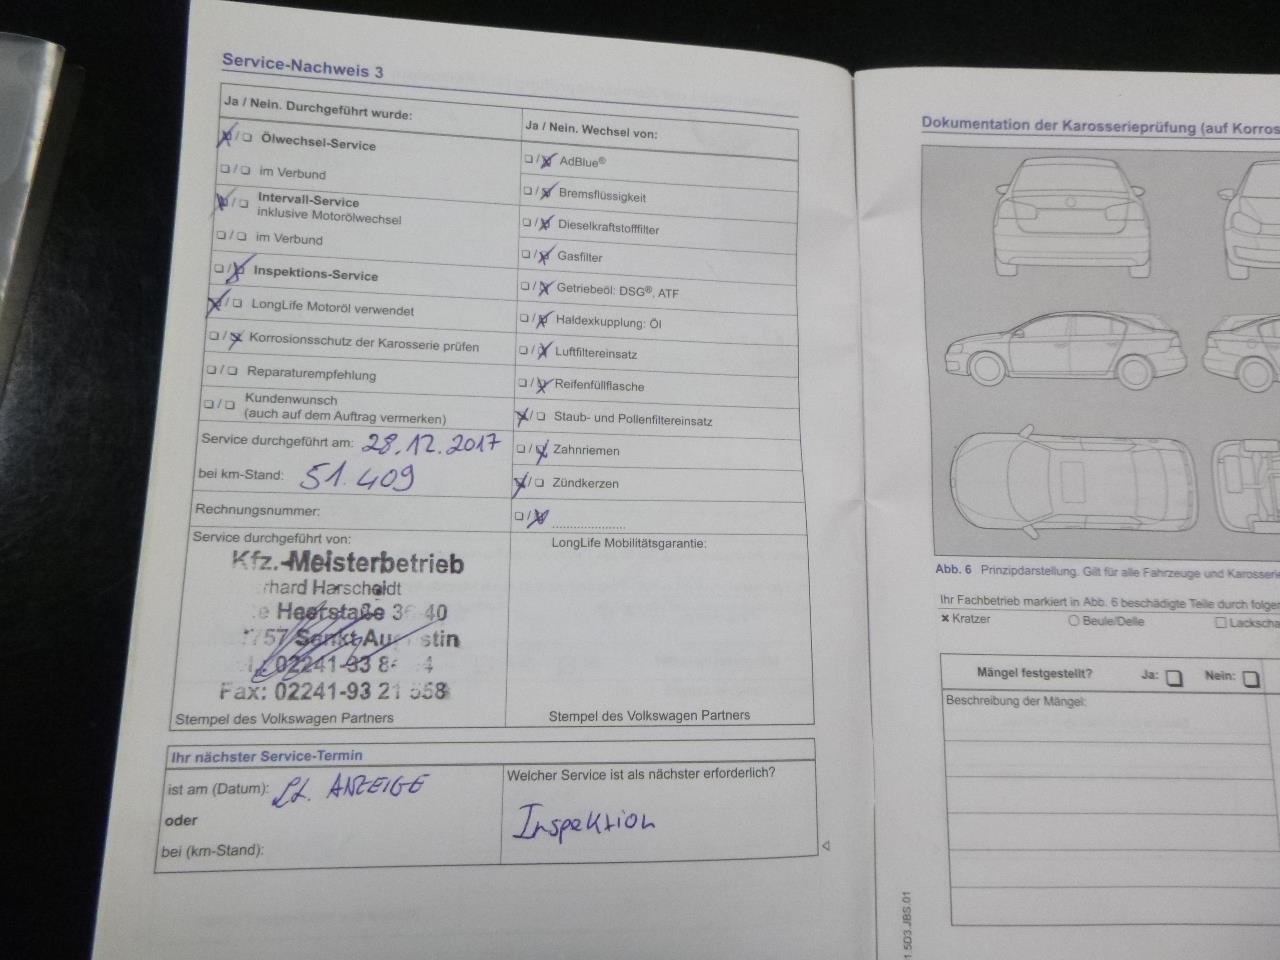 Service-Nachweis 3
Ja / Nein. Durchgeführt wurde:
Ölwechsel-Service
im Verbund
Intervall-Service
inklusive Motorölwechsel
im Verbund
Inspektions-Service
LongLife Motoröl verwendet
Korrosionsschutz der Karosserie prüfen
Reparaturempfehlung
Kundenwunsch
(auch auf dem Auftrag vermerken)
Service durchgeführt am: 28.12.2017
bei km-Stand: 51.409
Rechnungsnummer:
Ja / Nein. Wechsel von:
AdBlue®
Bremsflüssigkeit
Dieselkraftstofffilter
Gasfilter
Getriebeöl: DSG®, ATF
Haldexkupplung: Öl
Luftfiltereinsatz
Reifenfüllflasche
Staub- und Pollenfiltereinsatz
Zahnriemen
Zündkerzen
....................
Service durchgeführt von:
Kfz.-Meisterbetrieb
rhard Harscheidt
e Heerstaße 36 40
757 Sankt Au stin
02241-93 8 4
Fax: 02241-93 21 558
Stempel des Volkswagen Partners
LongLife Mobilitätsgarantie:
Stempel des Volkswagen Partners
Ihr nächster Service-Termin
ist am (Datum): Lt. ANZEIGE
oder
bei (km-Stand):
Welcher Service ist als nächster erforderlich?
Inspektion
Dokumentation der Karosserieprüfung (auf Korros
Abb. 6 Prinzipdarstellung. Gilt für alle Fahrzeuge und Karosserie
Ihr Fachbetrieb markiert in Abb. 6 beschädigte Teile durch folgen
Kratzer
Beule/Delle
Lackscha
Mängel festgestellt? Ja: Nein:
Beschreibung der Mängel:
1.5D3.JBS.01